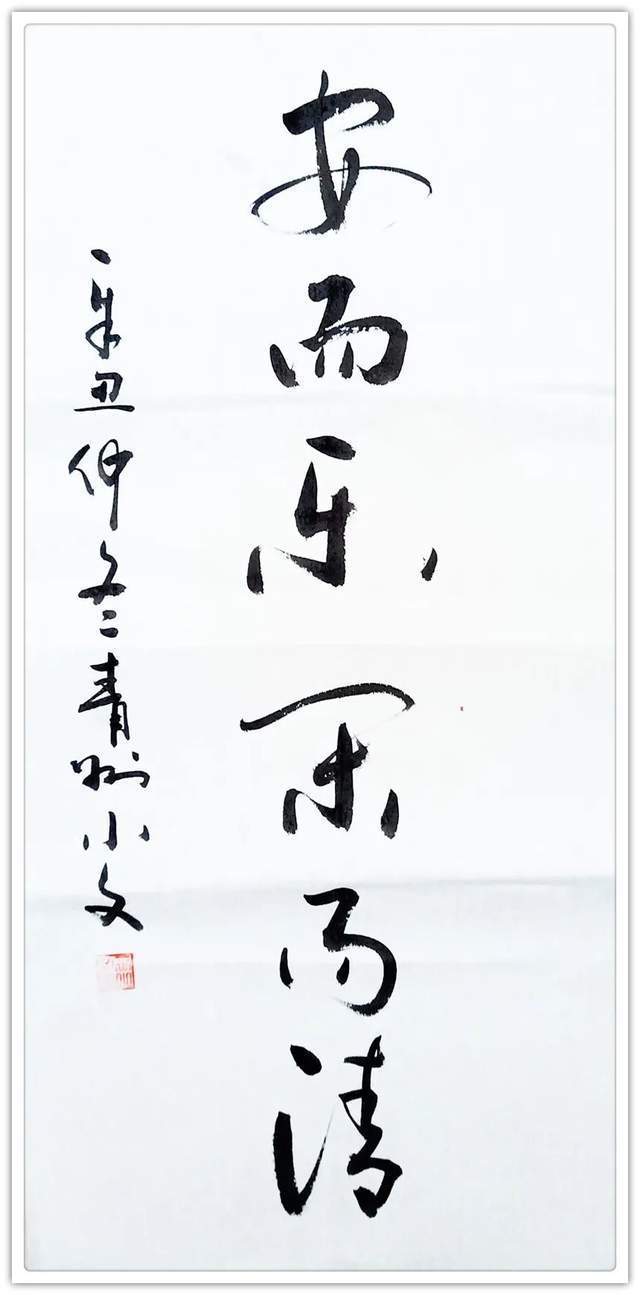 安而乐闲而清
辛丑仲冬青州小文